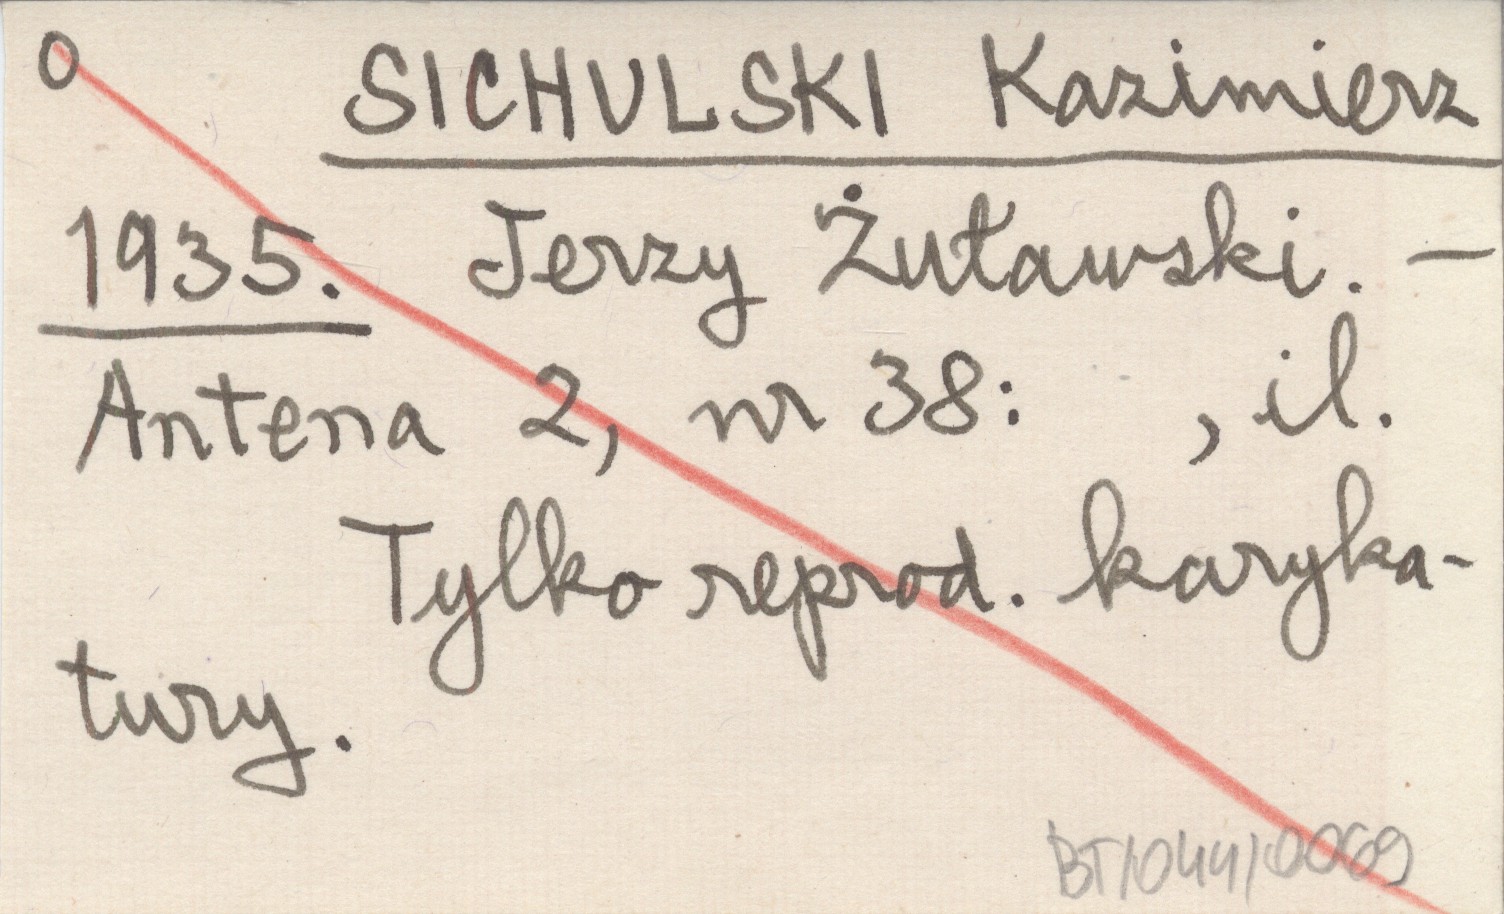 O SICHULSKI Kazimierz
1935. Jerzy Żuławski. —
Antena 2, nr 38: , il.
Tylko reprod. karyka-
tury.
BT/044/0069